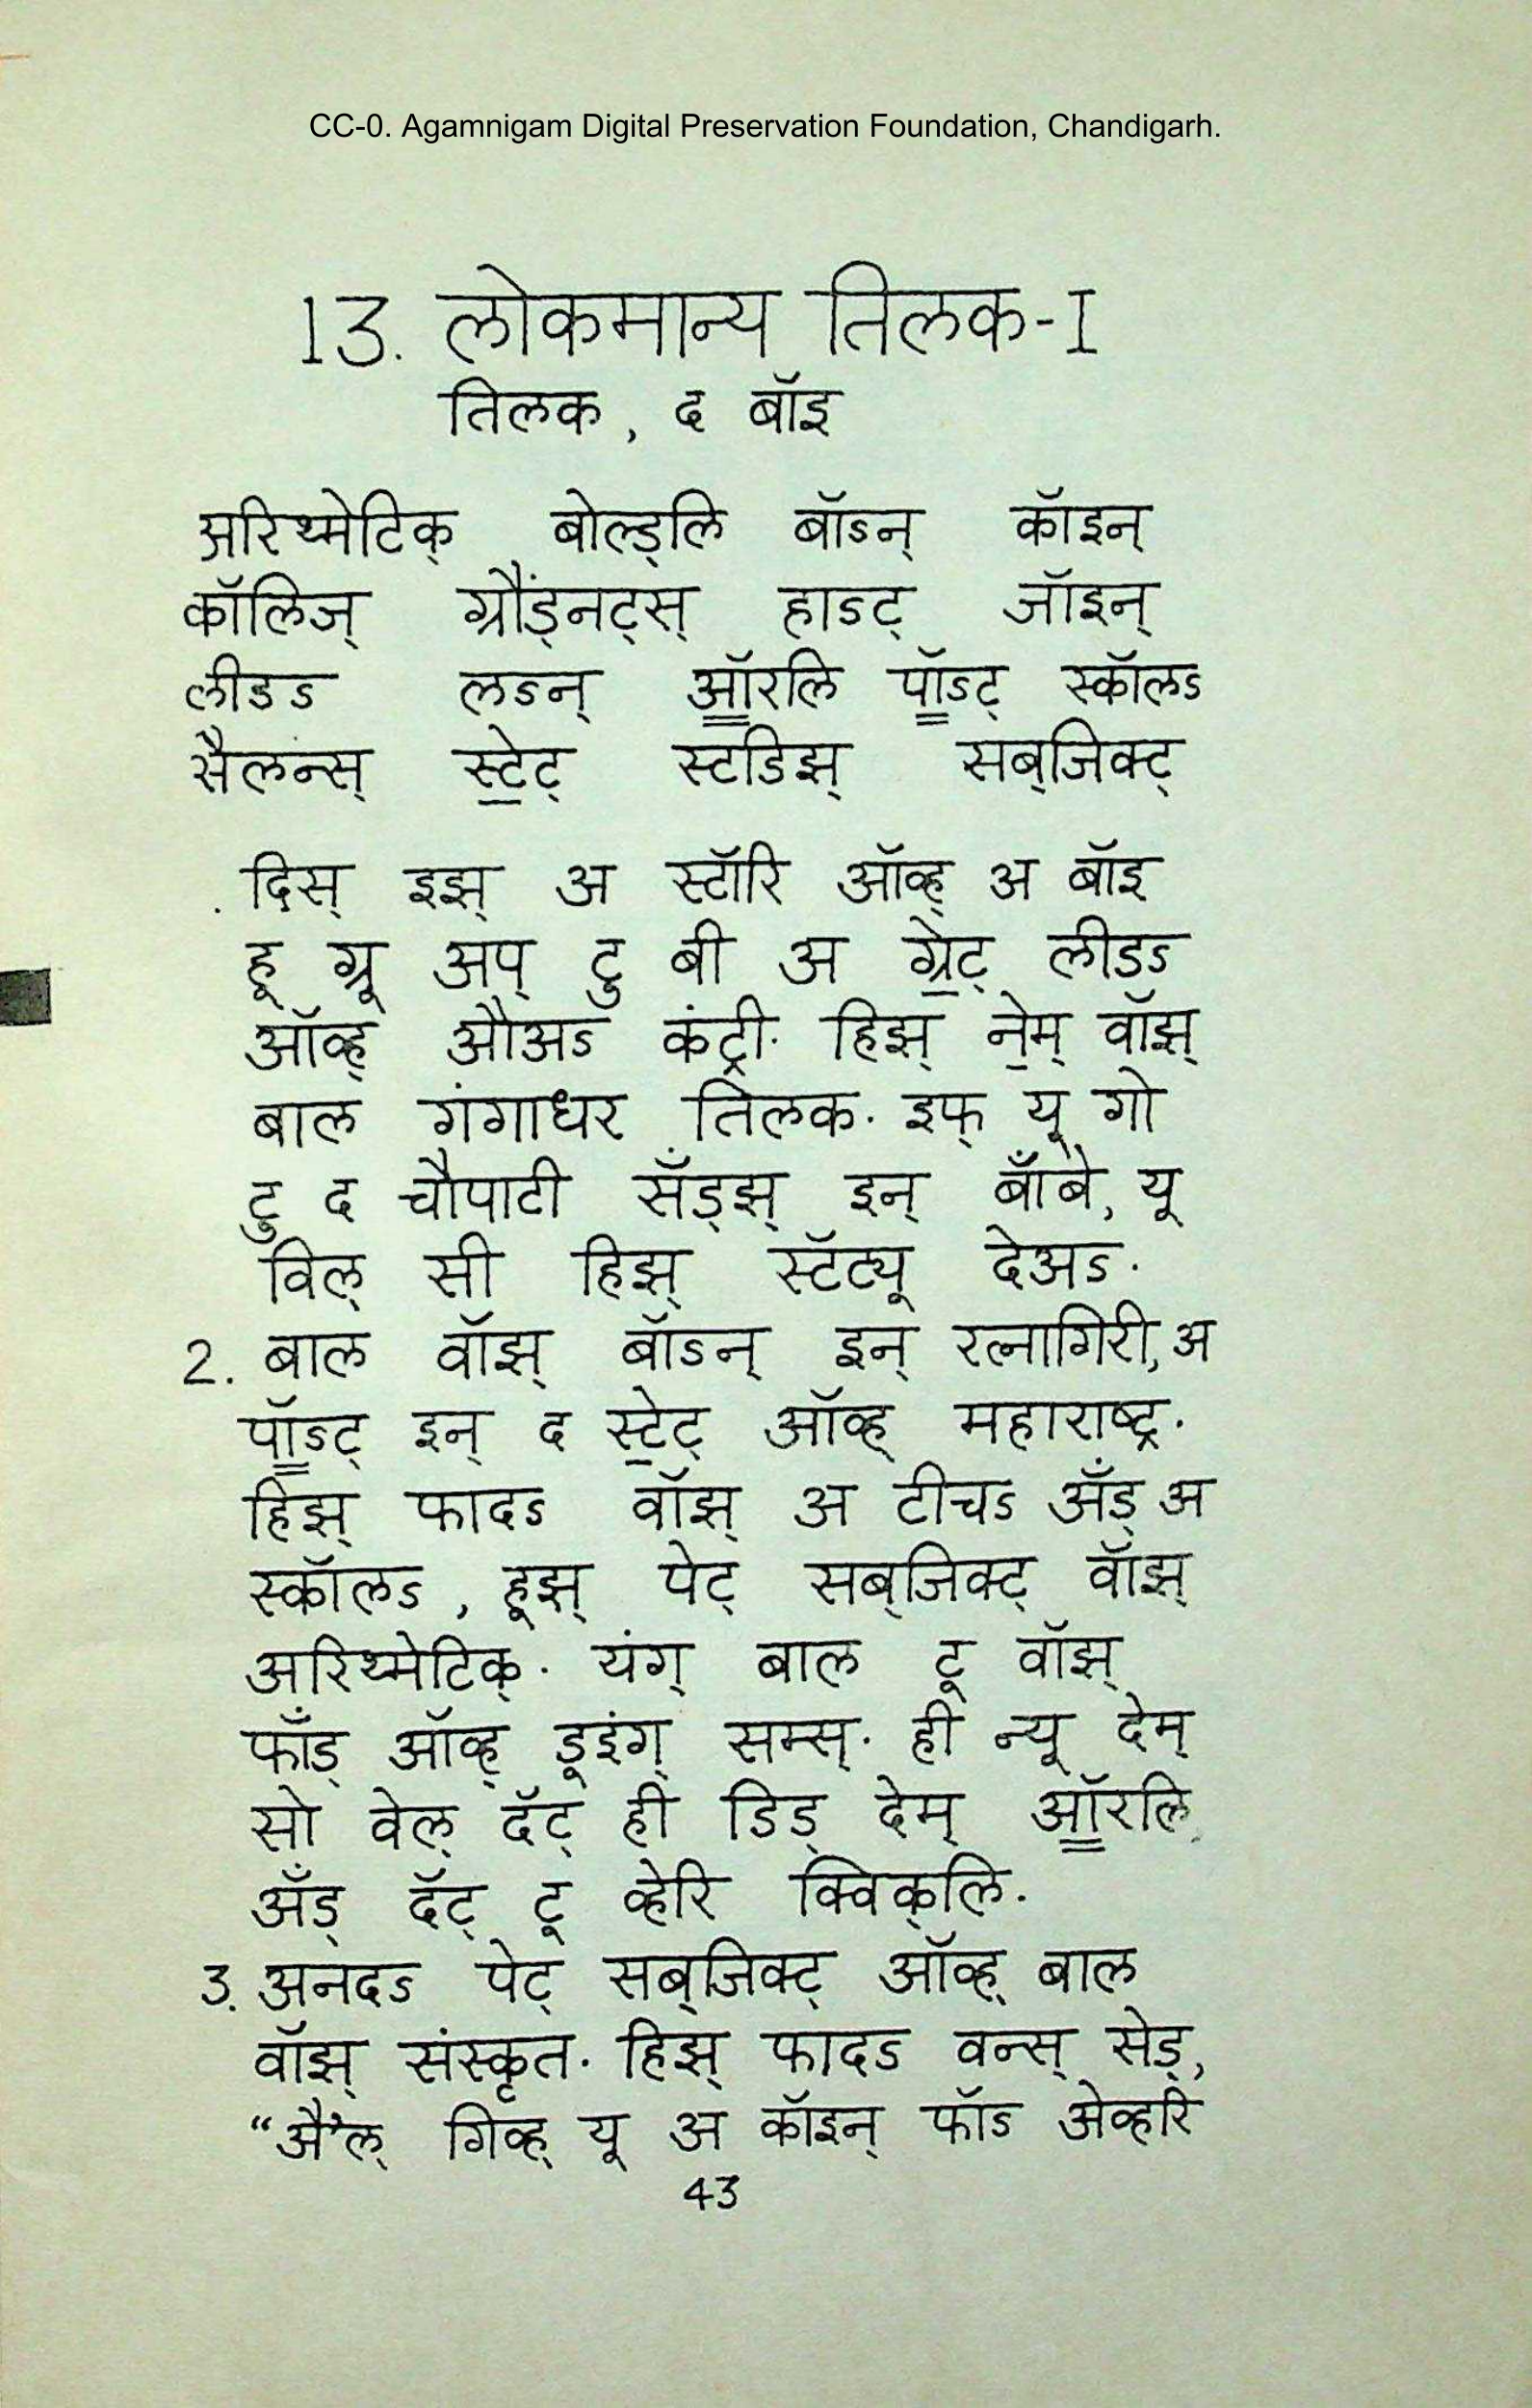 CC-0. Agamnigam Digital Preservation Foundation, Chandigarh.
13. लोकमान्य तिलक-I
तिलक, द बॉइ
अरिथ्मेटिक् बोल्ड्लि बॉऽन् कॉइन्
कॉलिज् ग्रौंड्नट्स् हाऽट् जॉइन्
लीडऽ लऽन् ऑरलि पॉऽट् स्कॉलऽ
सैलन्स् स्टेट् स्टडिझ् सब्‌जिक्ट्
. दिस् इझ् अ स्टॉरि ऑव्ह् अ बॉइ
हू ग्रू अप् टु बी अ ग्रेट् लीडऽ
ऑव्ह् औअऽ कंट्री. हिझ् नेम् वॉझ्
बाल गंगाधर तिलक. इफ् यू गो
टु द चौपाटी सँड्झ् इन् बाँबे, यू
विल् सी हिझ् स्टॅट्यू देअऽ.
2. बाल वॉझ् बॉऽन् इन् रत्नागिरी, अ
पॉऽट् इन् द स्टेट् ऑव्ह् महाराष्ट्र.
हिझ् फादऽ वॉझ् अ टीचऽ अँड् अ
स्कॉलऽ, हूझ् पेट् सब्‌जिक्ट् वॉझ्
अरिथ्मेटिक्. यंग् बाल टू वॉझ्
फाँड् ऑव्ह् डूइंग् सम्स्. ही न्यू देम्
सो वेल् दॅट् ही डिड् देम् ऑरलि
अँड् दॅट् टू व्हेरि क्विक्‌लि.
3. अनदऽ पेट् सब्‌जिक्ट् ऑव्ह् बाल
वॉझ् संस्कृत. हिझ् फादऽ वन्स् सेड्,
“अै'ल् गिव्ह् यू अ कॉइन् फॉऽ अेव्हरि
43